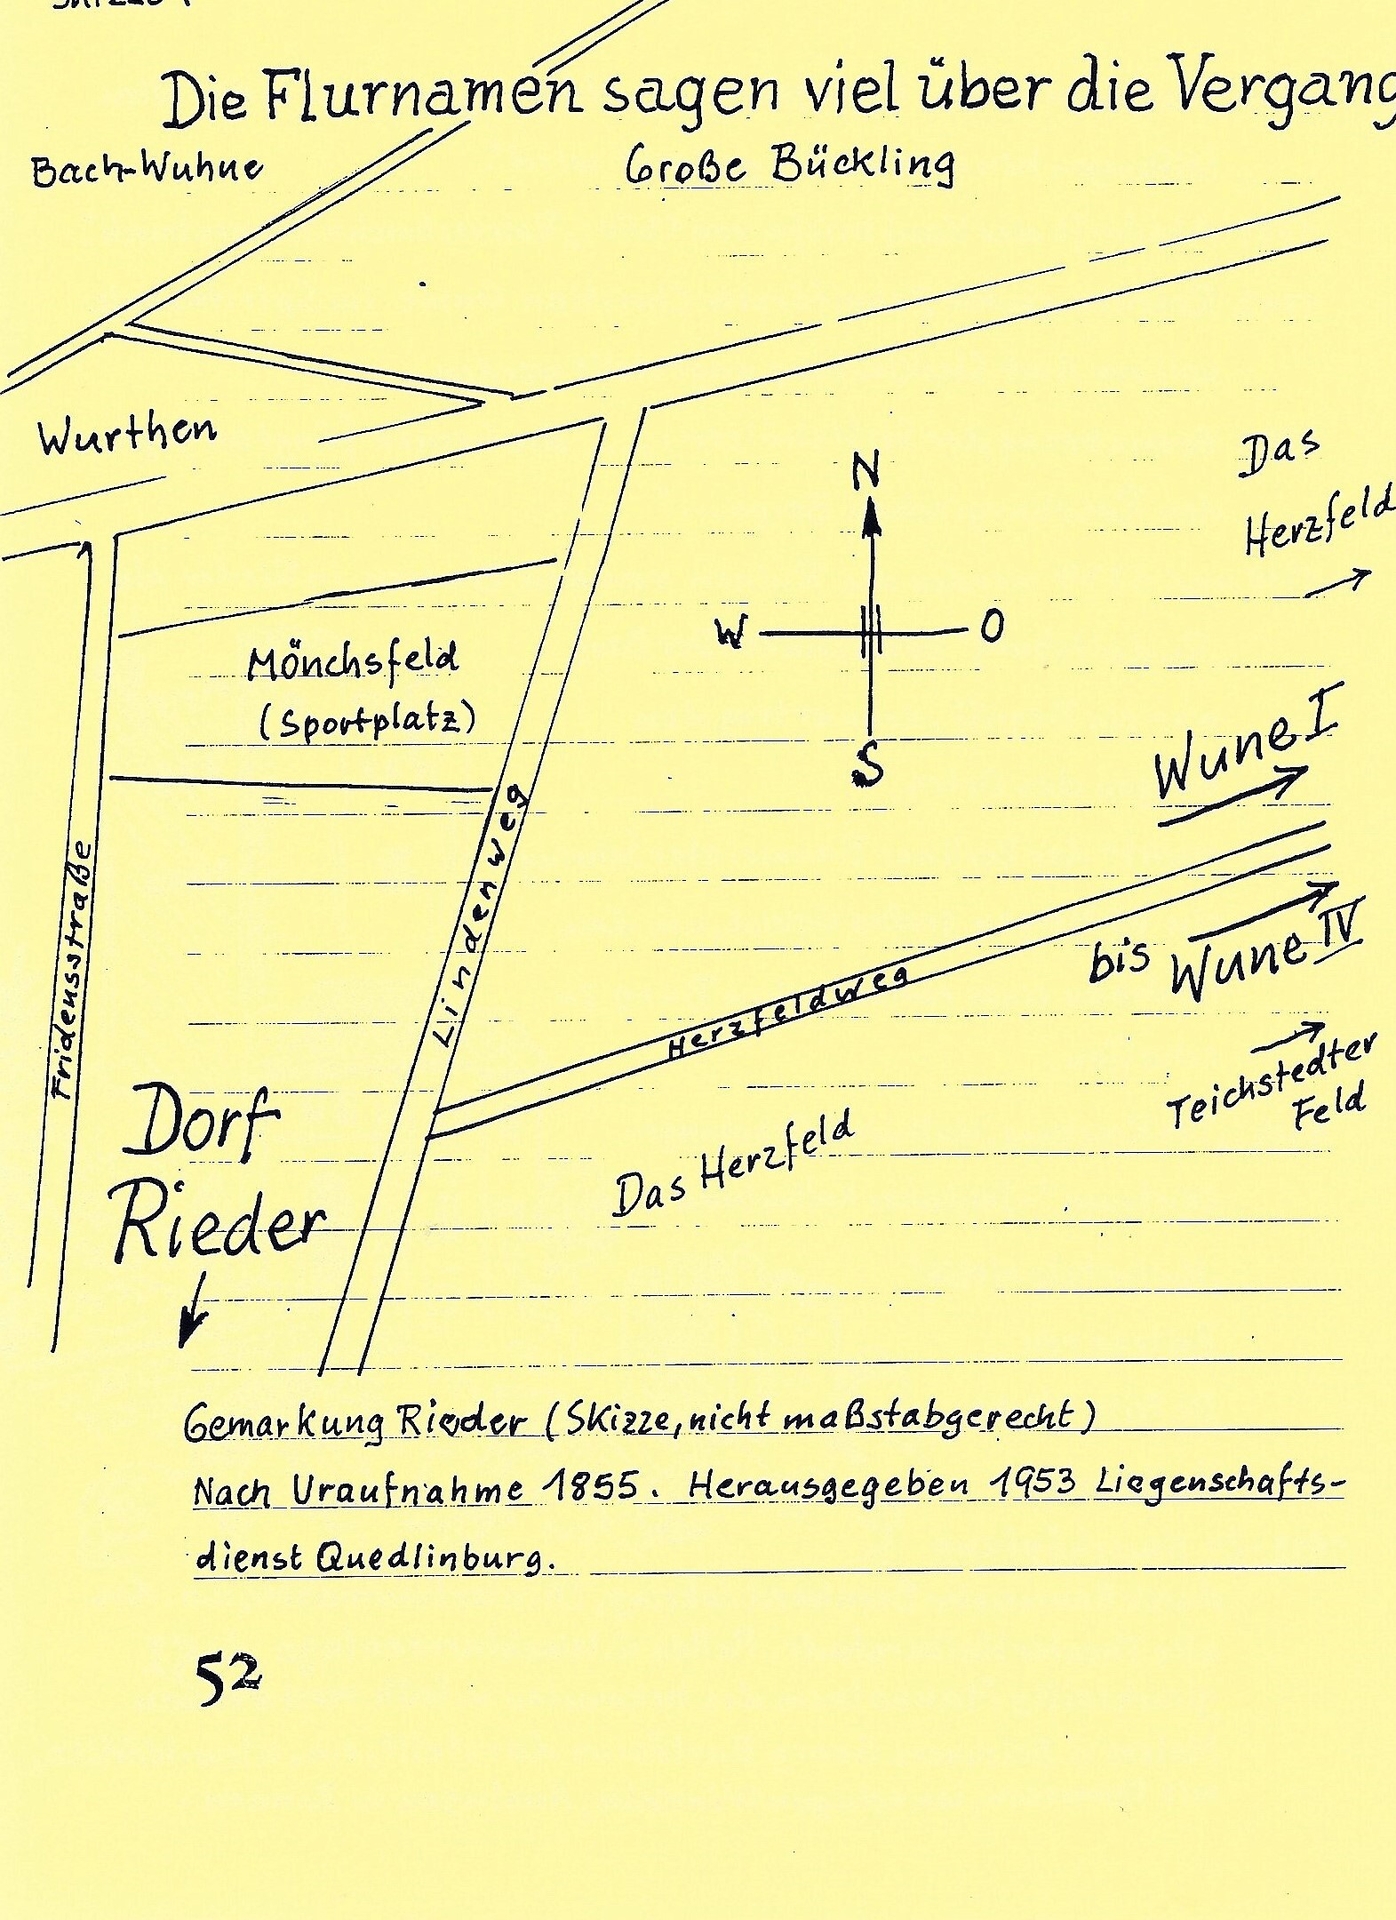 Die Flurnamen sagen viel über die Vergang
Bach-Wuhne
Große Bückling
Wurthen
Das
Herzfeld
N
W
O
S
Mönchsfeld
(Sportplatz)
Wune I
bis Wune IV
Fridensstraße
Lindenweg
Herzfeldweg
Teichstedter
Feld
Das Herzfeld
Dorf
Rieder
Gemarkung Rieder (Skizze, nicht maßstabgerecht)
Nach Uraufnahme 1855. Herausgegeben 1953 Liegenschafts-
dienst Quedlinburg.
52